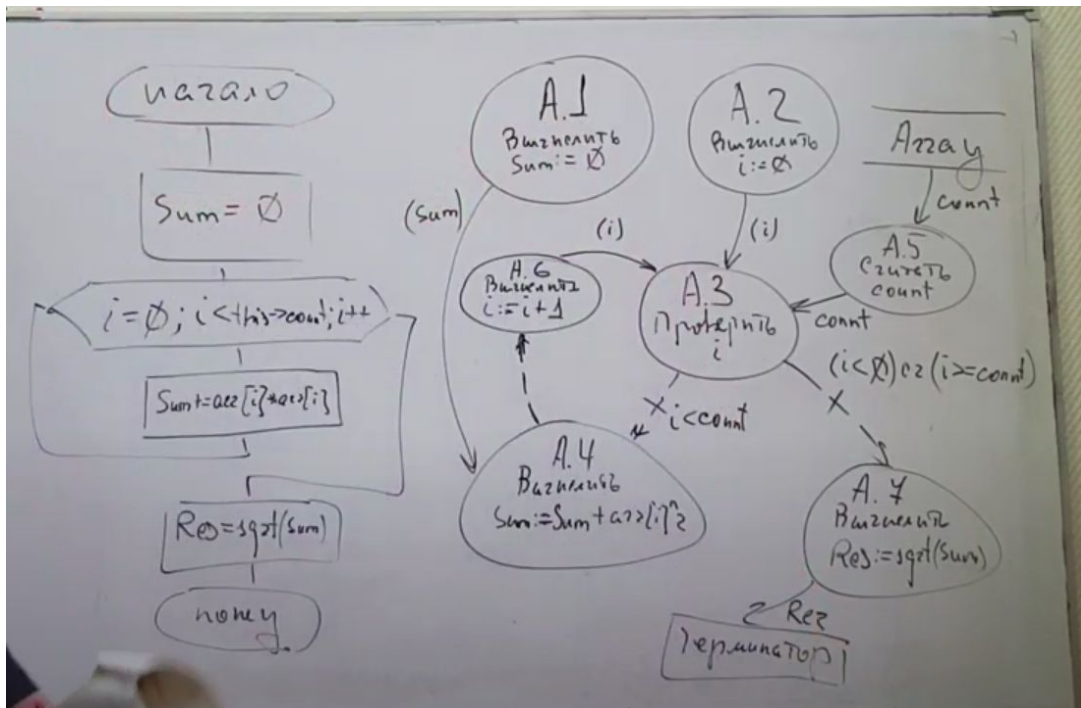 начало
Sum = 0
i=0; i<this->count; i++
Sum+=arr[i]*arr[i]
Res=sqrt(sum)
конец
A.1
Вычислить
Sum:=0
A.2
Вычислить
i:=0
Array
count
(sum)
(i)
(i)
A.5
Считать
count
A.6
Вычислить
i:=i+1
A.3
Проверить
i
count
i<count
(i<0) or (i>=count)
A.4
Вычислить
Sum:=Sum+arr[i]^2
A.7
Вычислить
Res:=sqrt(Sum)
Rez
Терминатор